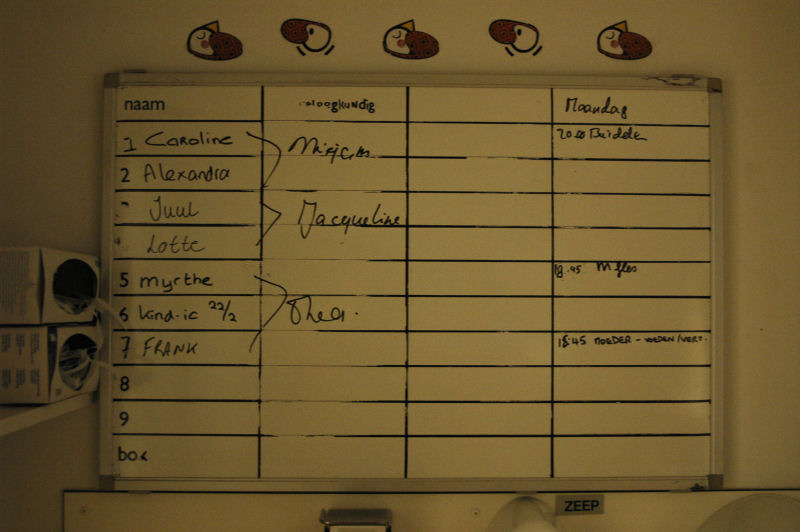 naam Maandag
1 Caroline Mirjam
2 Alexandra
Juul Jacqueline
Lotte
5 myrthe 18.45 M fles
6 kind-ic 22/2 Thea.
7 FRANK 18:45 MOEDER - VOEDEN/VERZ.
8
9
box
ZEEP